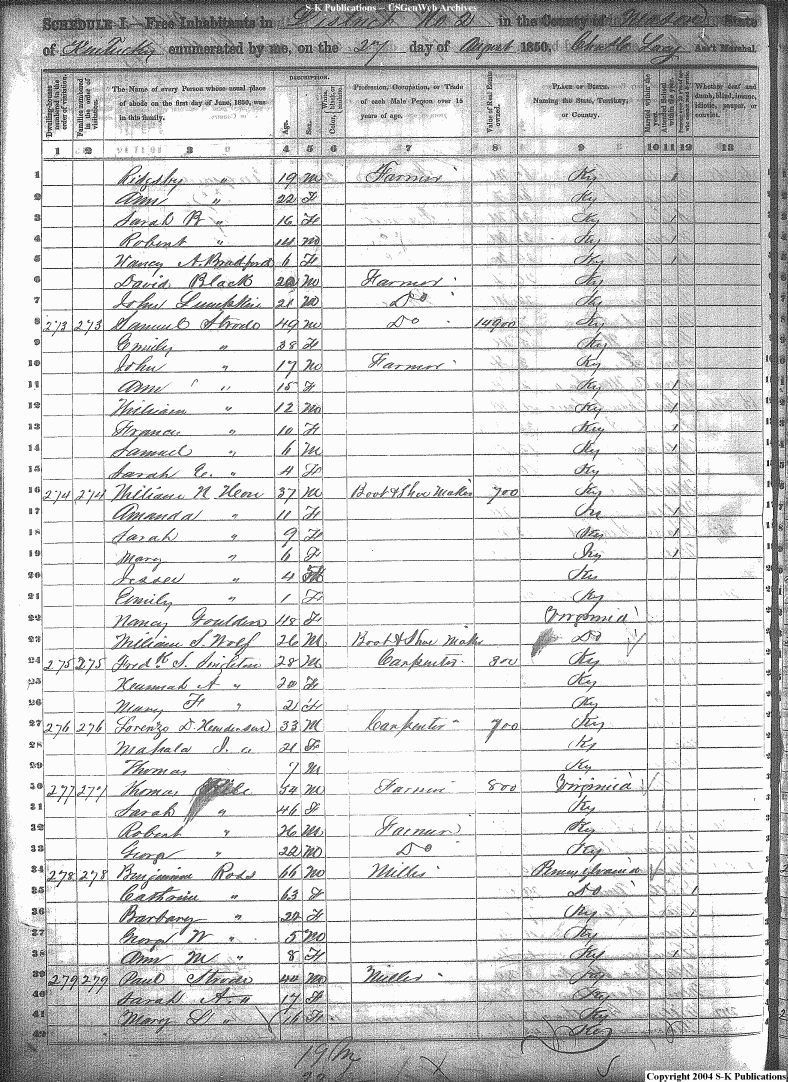 S-K Publications -- USGenWeb Archives
SCHEDULE I.—Free Inhabitants in District No 2 in the County of Mason State
of Kentucky enumerated by me, on the 27 day of August 1850, Ass't Marshal.
Dwelling-houses numbered in the order of visitation.
Families numbered in the order of visitation.
The Name of every Person whose usual place of abode on the first day of June, 1850, was in this family.
DESCRIPTION.
Age.
Sex.
Color, White, black, or mulatto.
Profession, Occupation, or Trade of each Male Person over 15 years of age.
Value of Real Estate owned.
PLACE OF BIRTH. Naming the State, Territory, or Country.
Married within the year.
Attended School within the year.
Whether deaf and dumb, blind, insane, idiotic, pauper, or convict.
1 2 3 4 5 6 7 8 9 10 11 12 13
1 " 19 M Farmer Ky 1
2 Ann " 22 F Ky
3 Sarah B " 16 F Ky 1
4 Robert " 14 M Ky 1
5 Nancy A. Bradford 6 F Ky 1
6 David Black M Farmer Ky
7 John Lumpkin 21 M Do Ky
8 273 273 Samuel Strode 49 M Do 14900 Ky
9 Emily " 38 F Ky
10 John " 17 M Farmer Ky
11 Ann " 15 F Ky 1
12 William " 12 M Ky 1
13 Frances " 10 F Ky 1
14 Samuel " 6 M Ky 1
15 Sarah E. " 4 F Ky
16 274 274 William N 37 M Boot & Shoe Maker 700 Ky
17 Amanda " 11 F 1
18 Sarah " 9 F Ky 1
19 Mary " 6 F Ky 1
20 Jessee " 4 Ky
21 Emily " 1 F Ky
22 Nancy Goulden 48 F Virginia
23 William S. Wolf 26 M Boot & Shoe Maker Do
24 275 275 Fredk S. Singleton 28 M Carpenter 300 Ky
25 A " 20 F Ky
26 Mary F " 2 F Ky
27 276 276 Lorenzo D. Henderson 33 M Carpenter 700 Ky
28 Mahala 21 F Ky
29 Thomas 7 M Ky
30 277 277 Thomas 54 M Farmer 800 Virginia
31 Sarah " 46 F Ky
32 Robert " 26 M Farmer Ky
33 George " 22 M Do Ky
34 278 278 Benjamin Ross 66 M Miller Pennsylvania
35 Catharine " 63 F Do 1
36 Barbary " 22 F Ky 1
37 George W " 5 M Ky
38 Ann M " 8 F Ky 1
39 279 279 Paul Strode 44 M Miller Ky
40 Sarah A. " 17 F Ky
41 Mary " 16 F Ky
42 Ky
19 M
Copyright 2004 S-K Publications